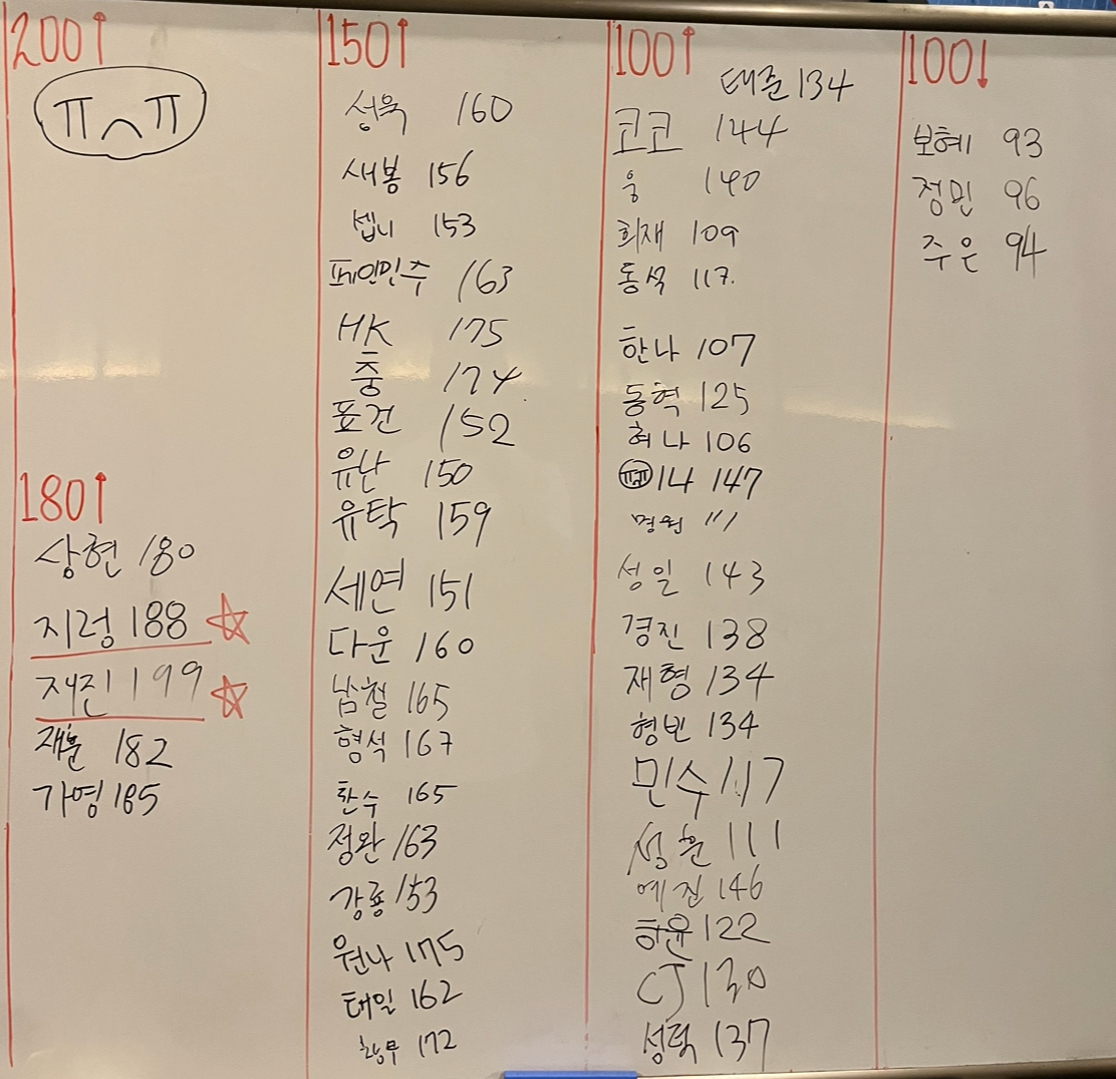 200↑
ㅠㅅㅠ
180↑
상현 180
지령 188 ☆
재진 199 ☆
재훈 182
가영 185
150↑
성욱 160
새봉 156
셉니 153
페인민주 163
HK 175
충 174
표건 152
유난 150
유탁 159
세연 151
다운 160
남철 165
형석 167
환수 165
정완 163
강룡 153
원나 175
태일 162
172
100↑
태준 134
코코 144
웅 140
희재 109
동석 117.
한나 107
동혁 125
허나 106
147
명원 111
성일 143
경진 138
재형 134
형빈 134
민수 117
성훈 111
예진 146
하윤 122
CJ 130
성택 137
100↓
보혜 93
정민 96
주은 94